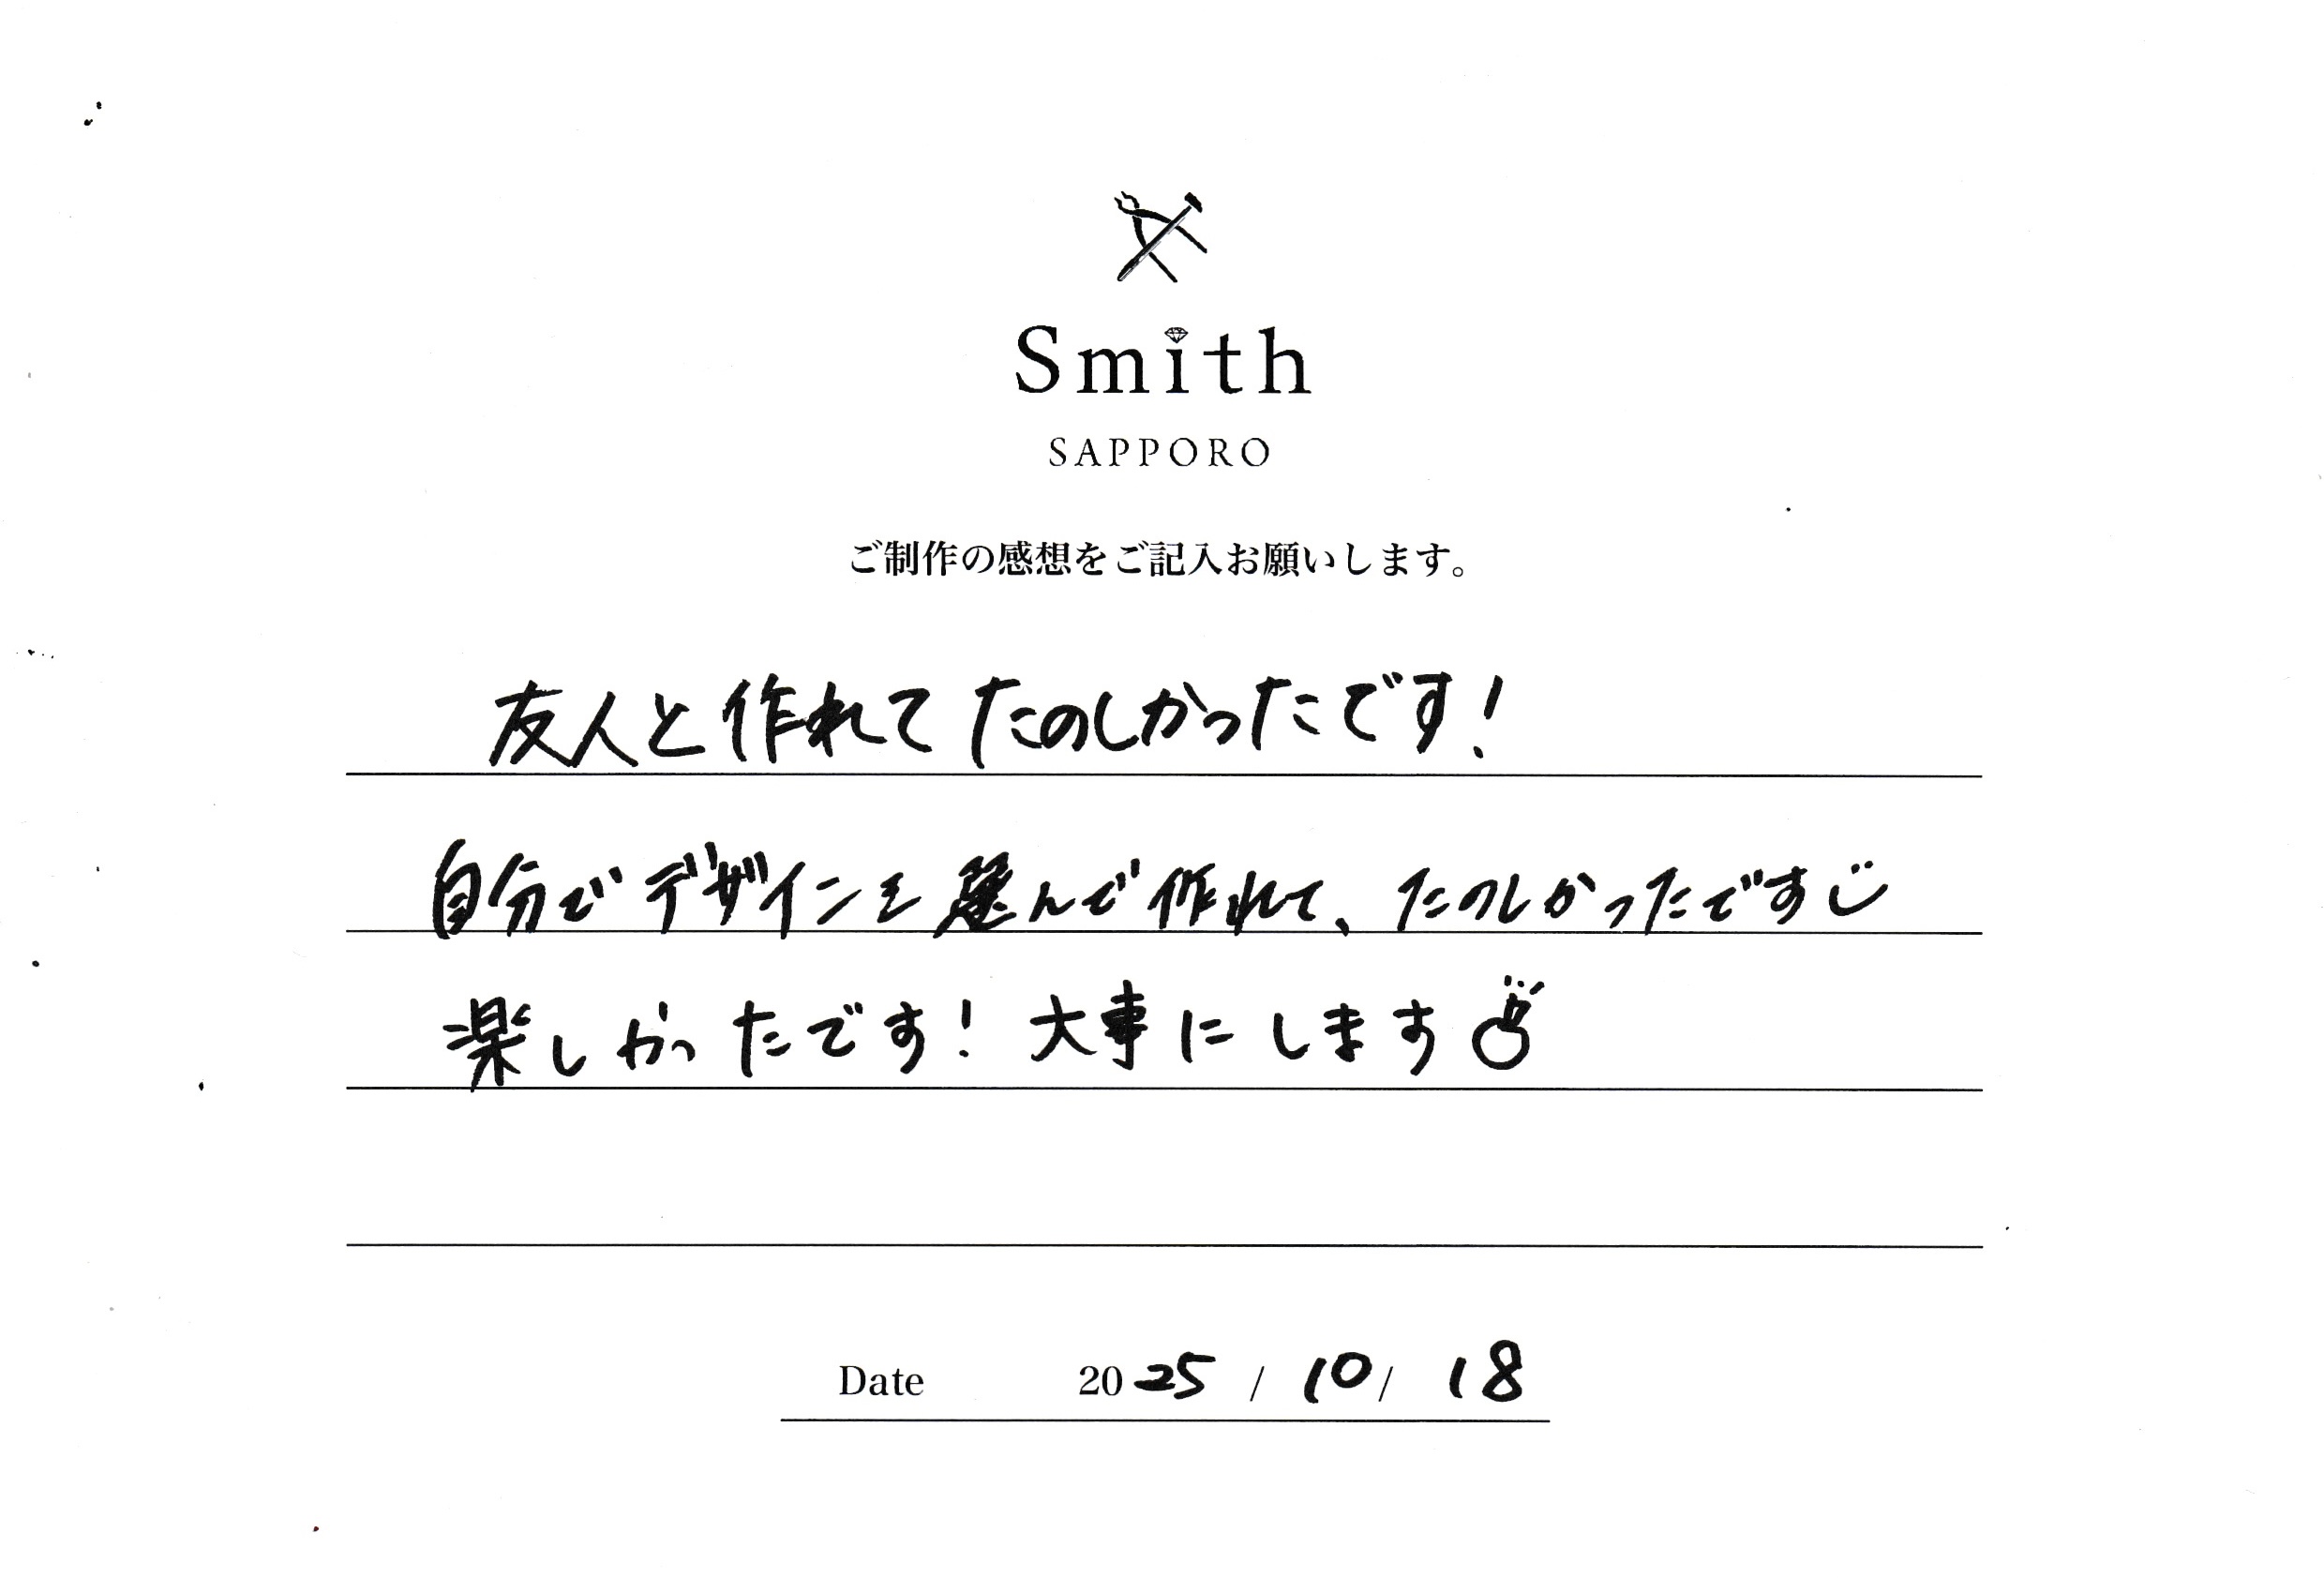 Smith
SAPPORO
ご制作の感想をご記入お願いします。
友人と作れてたのしかったです!
自分でデザインを選んで作れて、たのしかったです
楽しかったです!大事にします
Date 2025 / 10 / 18